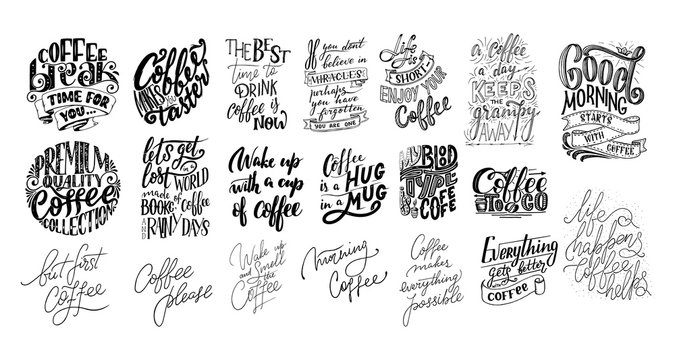 COFFEE
break
TIME FOR
YOU...
Coffee
MAKES
THE BEST
time to
DRINK
coffee is
NOW
If you don't
believe in
MIRACLES
perhaps
you have
forgotten
YOU ARE ONE
Life is
SHORT
ENJOY YOUR
Coffee
a coffee
a day
KEEPS
the
grumpy
AWAY!
Good
MORNING
STARTS
WITH COFFEE
PREMIUM
QUALITY
Coffee
COLLECTION
let's get
lost WORLD
made of
coffee
AND RAINY DAYS
Wake up
with a cup
of coffee
Coffee
is a HUG
in a MUG
MY BLOD
TYPE
COFE
COFE
Coffee
TO GO
but first
Coffee
Coffee
please
Wake up
and smell
the
Coffee
morning
Coffee
Coffee
makes
everything
possible
Everything
gets better
with
COFFEE
life
happens
Coffee
helps